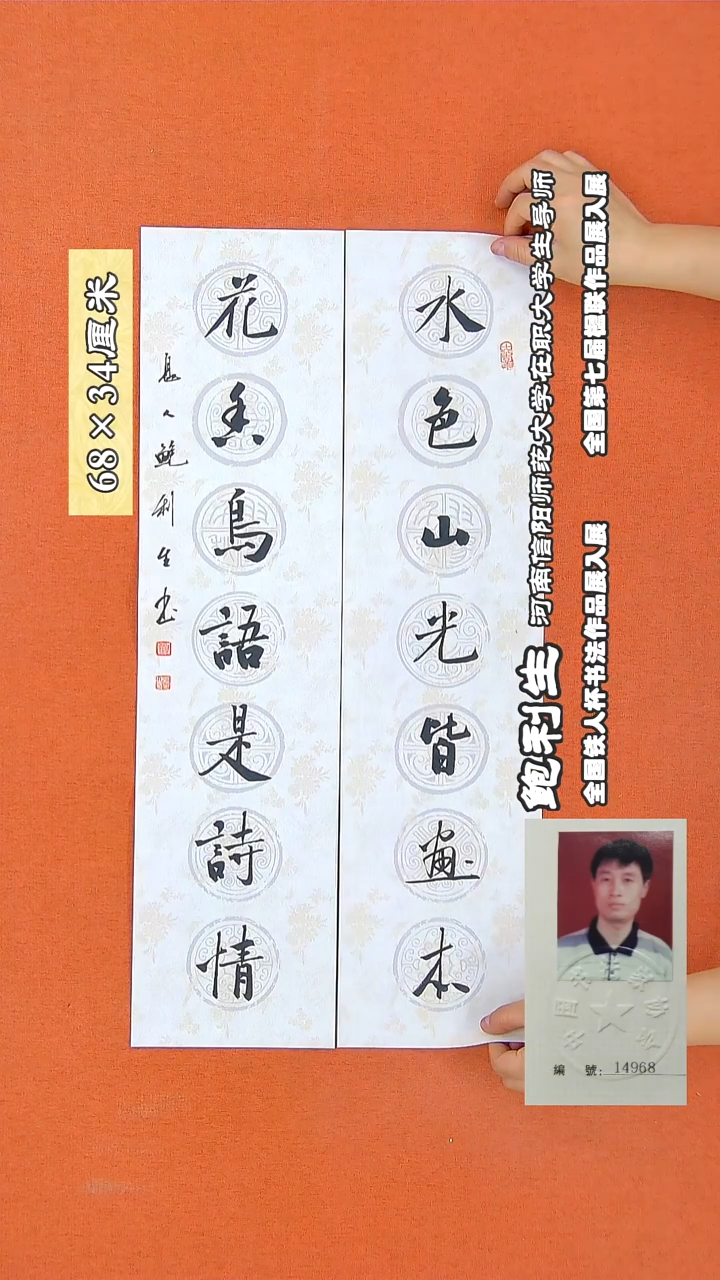 水色山光皆畫本
花香鳥語是詩情
息人鲍利生书
68×34厘米
鲍利生
河南信阳师范大学在职大学生导师
全国铁人杯书法作品展入展
全国第七届楹联作品展入展
編 號: 14968